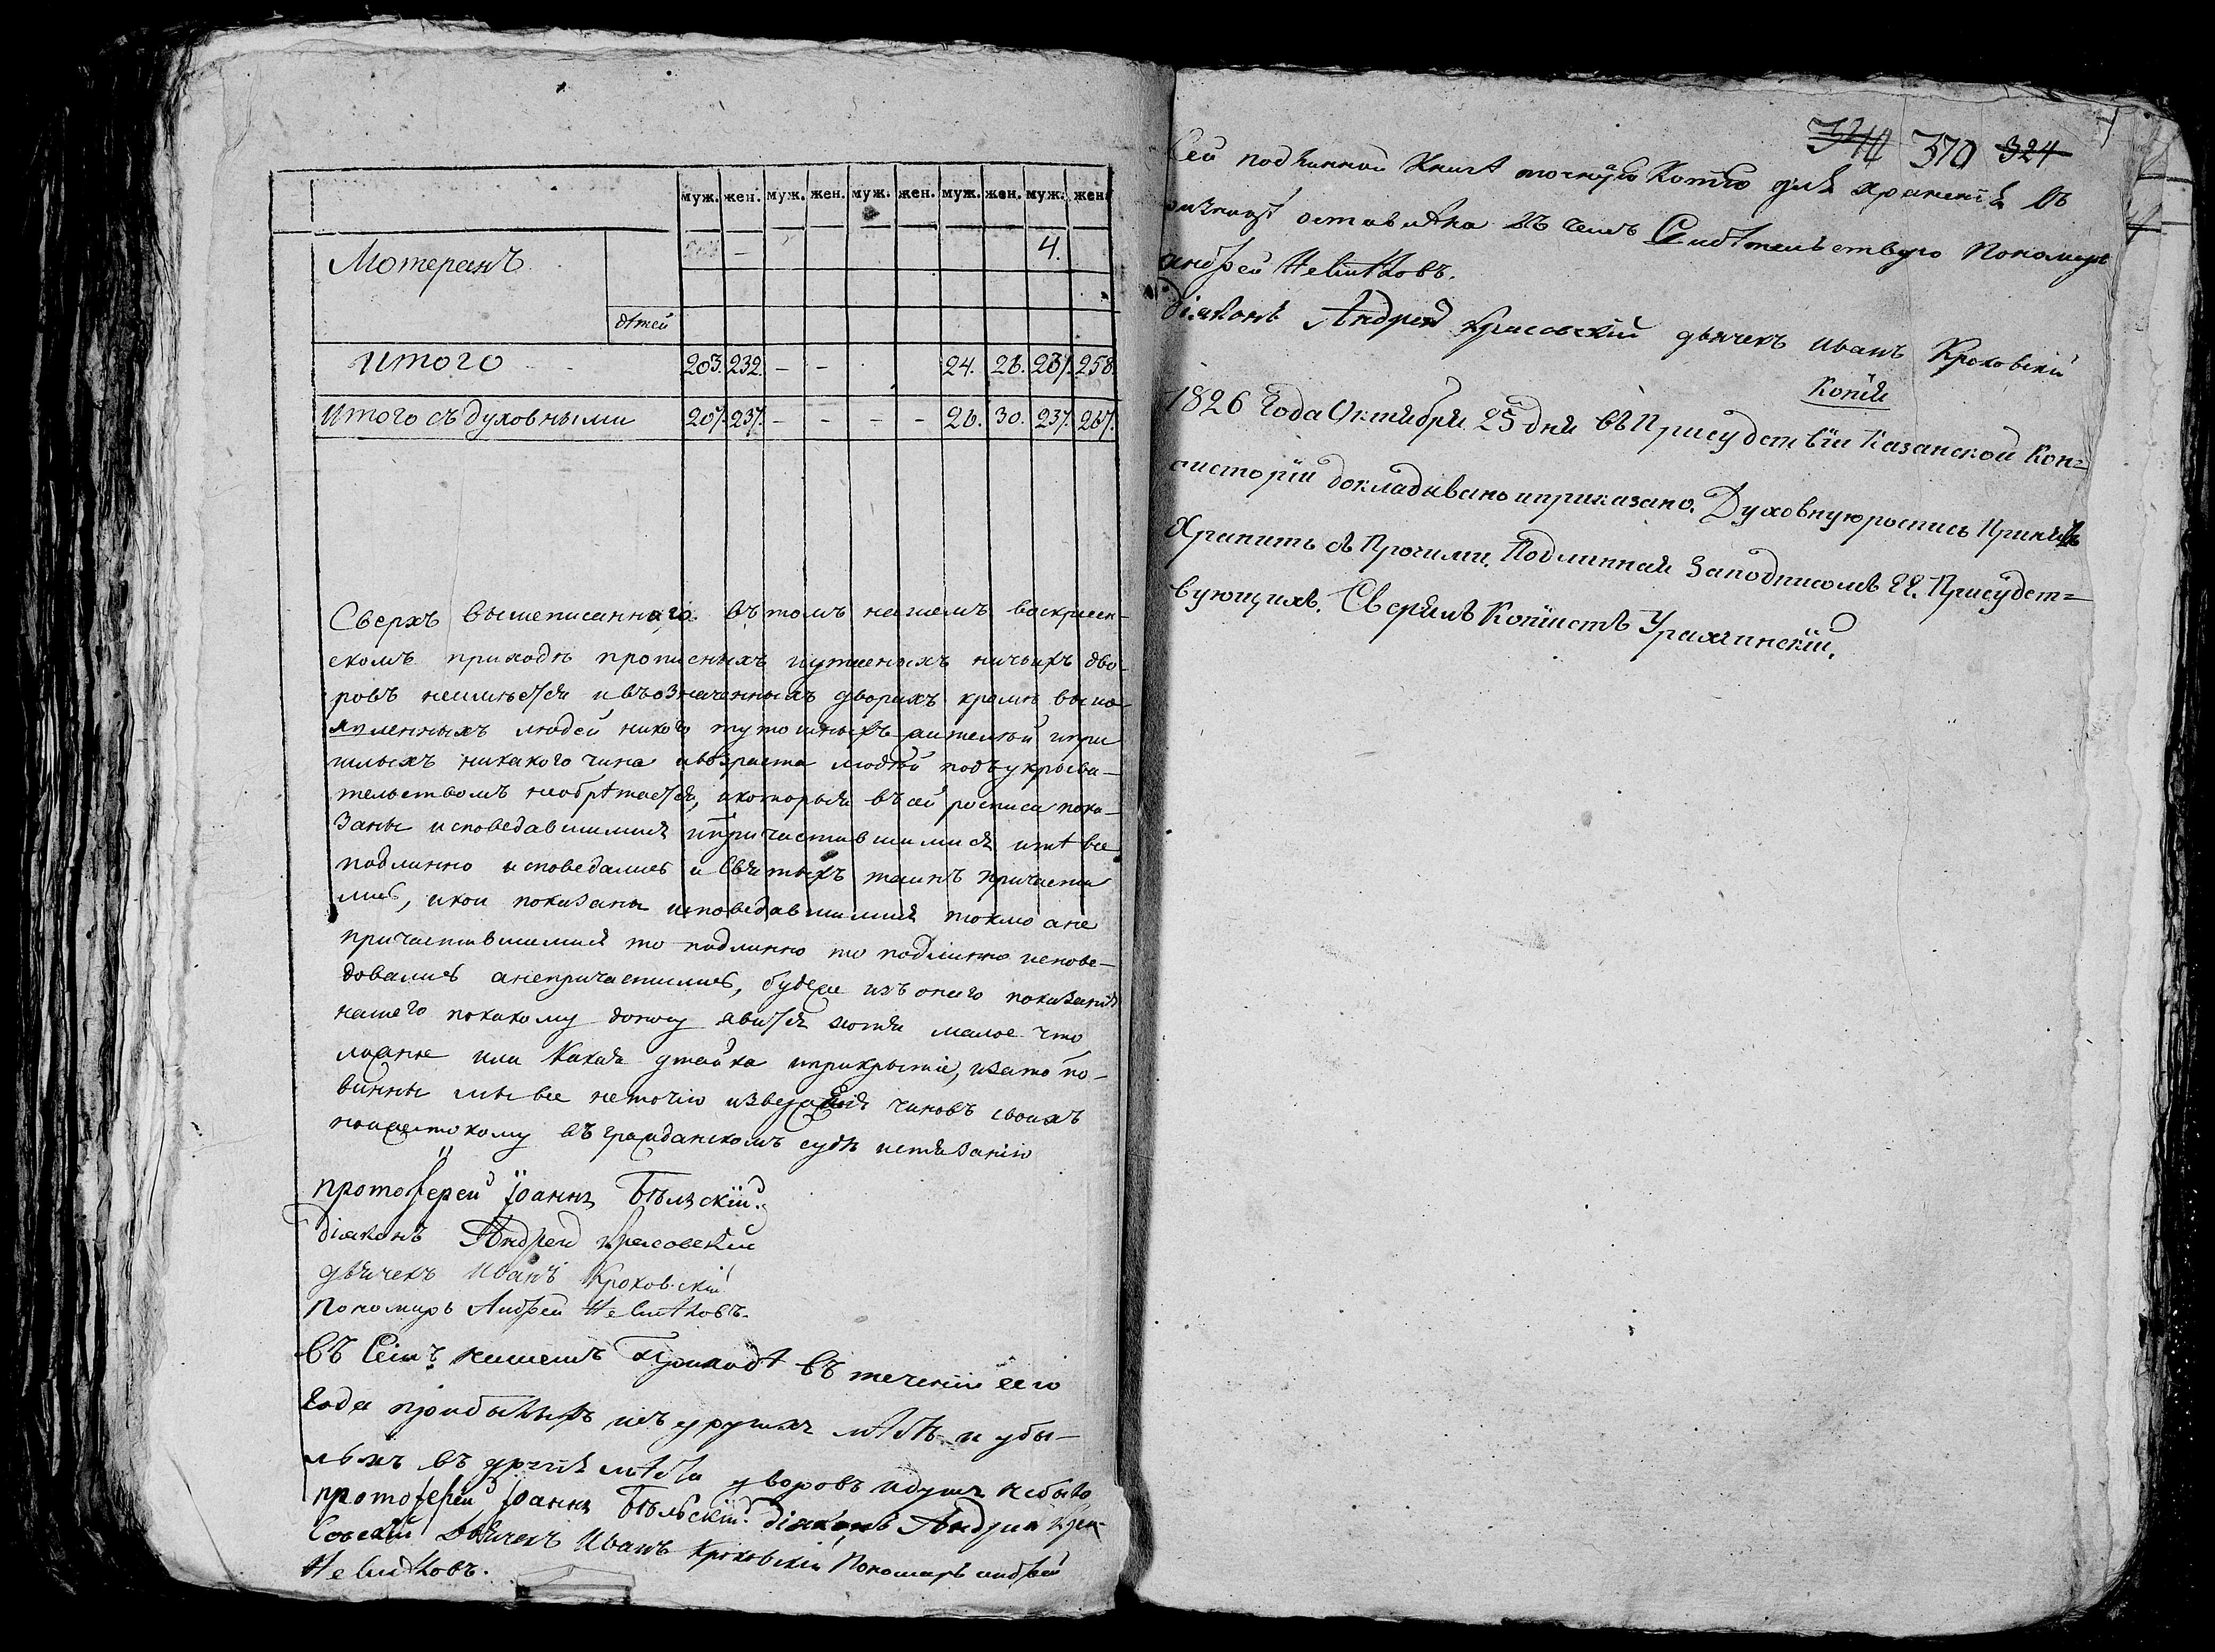 муж. жен. муж. жен. муж. жен. муж. жен. муж. жен.
Мотеранъ 4.
дѣтей
Итого 203. 232. - - 24. 26. 237. 258.
Итого съ духовными 207. 237. - - - - 26. 30. 237. 267.
Сверхъ вышеписаннаго въ томъ нашемъ воскресен-
скомъ приходѣ прописныхъ иутаеныхъ ничьихъ дво-
ровъ неимѣется ивъозначенныхъ дворахъ кромѣ выно-
явленныхъ людей никого тутошныхъ жителѣй ипри
шлыхъ никакого чина ивозраста людѣй подъукрыва-
тельствомъ необрѣтается, икоторыя въсей росписи пока-
заны исповедавшимися ипричастившимися итѣ все
подлинно исповедались и Святыхъ таинъ причасти
лись, икои показаны исповедавшимися токмо ане
причаствшимися то подлинно то подлинно испове-
довались анепричастились, будеже изъ онаго показанія
нашего покакому доносу явится хотя малое что
ложне или Какая утайка иприкрытіе, изато по-
винны мы все неточію изверженія чиновъ своихъ
ножестокому въ гражданскомъ судѣ истязанію
протоіерей Іоаннъ Бѣльскій.
діаконъ Андрей Красовскій
дьячекъ Иванъ Кроковскій
Пономарь Андрей
въ Семъ нашемъ Приходѣ въ теченіи сего
Года прибылыхъ изъ другихъ мѣстъ и убы-
лыхъ въ другія мѣста дворовъ идушъ небыло
протоіерей Іоаннъ Бѣльскій. діаконъ Андрей Кра-
совскій Дьячекъ Иванъ Кроковскій Пономарь андрей
344 370 324
Сей подлинной Книги точную Копію для храненія въ
оставилъ на въ чемъ Свидѣтельствую Пономарь
андрей
діаконъ Андрей Красовскій дьячекъ иванъ Кроковскій
Копія
1826 Года Октября 25 дня въ Присудствіи Казанской Кон=
систоріи докладывано иприказано. Духовную роспись Принявъ
Хранить съ Прочими. Подлинная Заподписомъ ГГ. Присудст=
вующихъ. Сверялъ Копіистъ Урахчинскій.